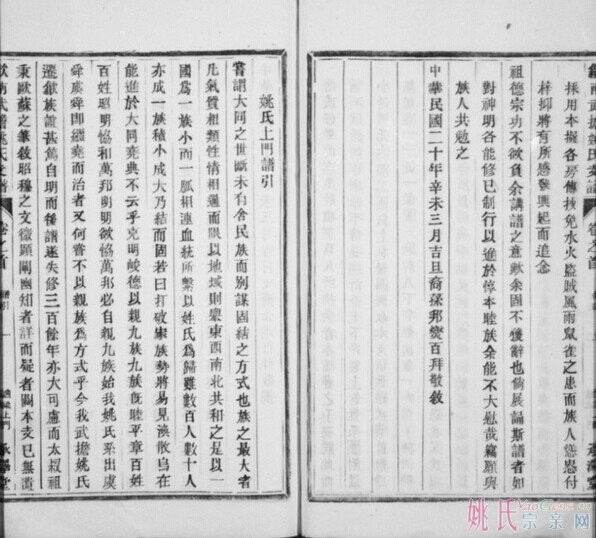 採用本擬各房傳抜免水火盜賊風雨鼠雀之患而族人慫恿付
梓抑將有所感發興起而追念
祖德宗功不欲負余講譜之意歟余固不獲辭也倘展誦斯譜者如
對神明各能修已制行以進於惇本睦族余能不大慰哉竊願與
族人共勉之
中華民國二十年辛未三月吉旦裔孫邦燮百拜敬敘
姚氏上門譜引
嘗謂大同之世斷未有舍民族而別謀固結之方式也族之最大者
凡氣質相類性情相通而限以地域則舉東西南北共和之是以一
國為一族小而一脈相連血統所繫以姓氏為歸雖數百人數十人
亦成一族積小成大乃結而固若曰打破宗族勢將易見渙散烏在
能進於大同堯典不云乎克明峻德以親九族九族旣睦平章百姓
百姓昭明協和萬邦明明欲協萬邦必自親九族始我姚氏系出虞
舜虞舜卽繼堯而治者何嘗不以親族為方式乎今我武擔姚氏
遷歙族誼甚篤自明而後譜遂失修三百餘年亦大可慮而太叔祖
秉歐蘇之筆敘昭穆之文徵顯闡幽知者詳而疑者闕本支已無遺
歙南武擔姚氏支譜
卷之首
譜引
一
承澤堂
姚氏宗亲网
YaoGens.cn